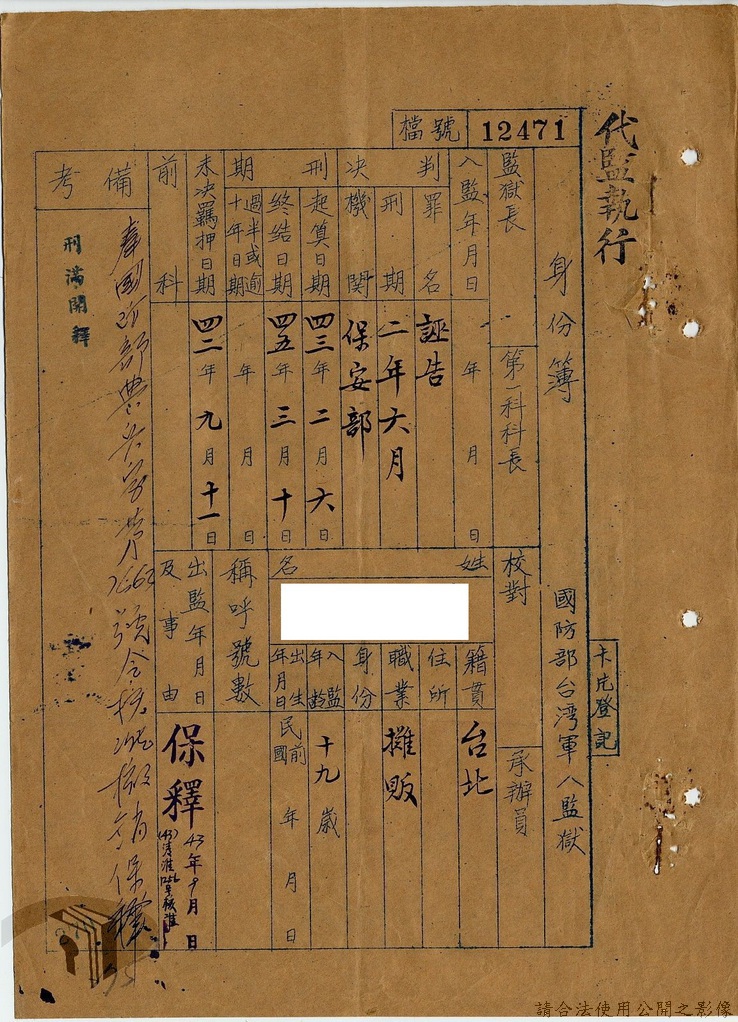 代監執行
檔號 12471
卡片登記
身份簿 國防部台湾軍人監獄
監獄長 第一科科長 校對 承辦員
入監年月日 年 月 日
判決
罪名 誣告
刑期 二年六月
機関 保安部
刑期
起算日期 四三年二月六日
終結日期 四五年三月十日
過半或逾十年日期 年 月 日
未決羈押日期 四二年九月十一日
前科
姓名
籍貫 台北
住所
職業 攤販
身份
入監年齡 十九歲
出生年月日 民前國 年 月 日
稱呼號數
出監年月日及事由 保釋 43年9月 日
備考
奉國防部
號令核准撤銷保釋
刑滿開釋
請合法使用公開之影像